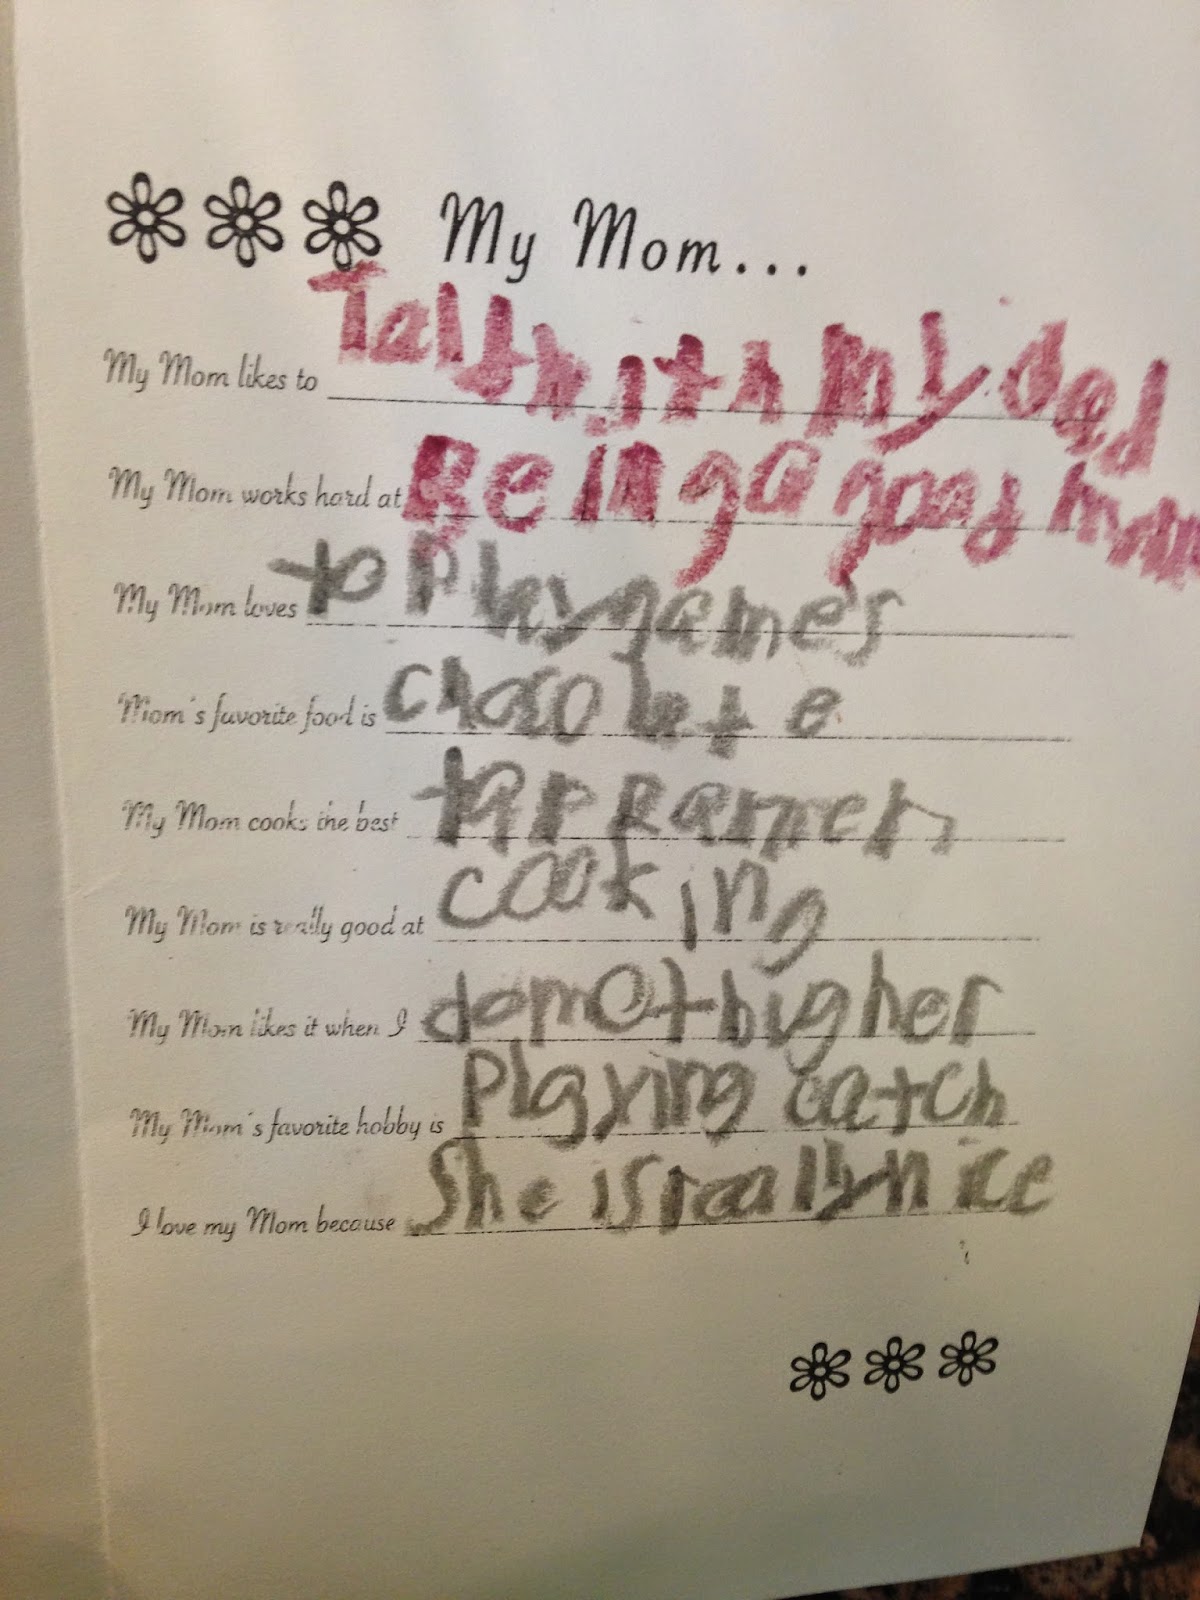 My Mom...
My Mom likes to Talk with my dad
My Mom works hard at Being a good mom
My Mom loves to Play games
Mom's favorite food is chocolate
My Mom cooks the best
My Mom is really good at cooking
My Mom likes it when I
My Mom's favorite hobby is Playing catch
I love my Mom because She is really nice